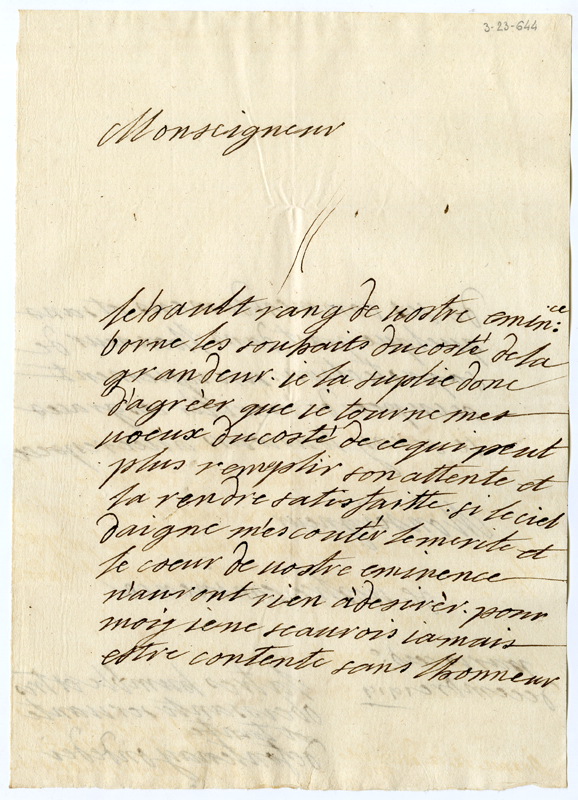 3-23-644
Monseigneur
le hault rang de vostre emin:ce
borne les souhaits ducosté de la
grandeur. ie la suplie donc
d'agréer que ie tourne mes
voeux ducosté de cequi peut
plus remplir son attente et
la rendre satisfaitte. si le ciel
daigne m'escoutér le merite et
le coeur de vostre eminence
n'auront rien àdesirèr. pour
moiy iene scaurois iamais
estre contente sans lhonneur